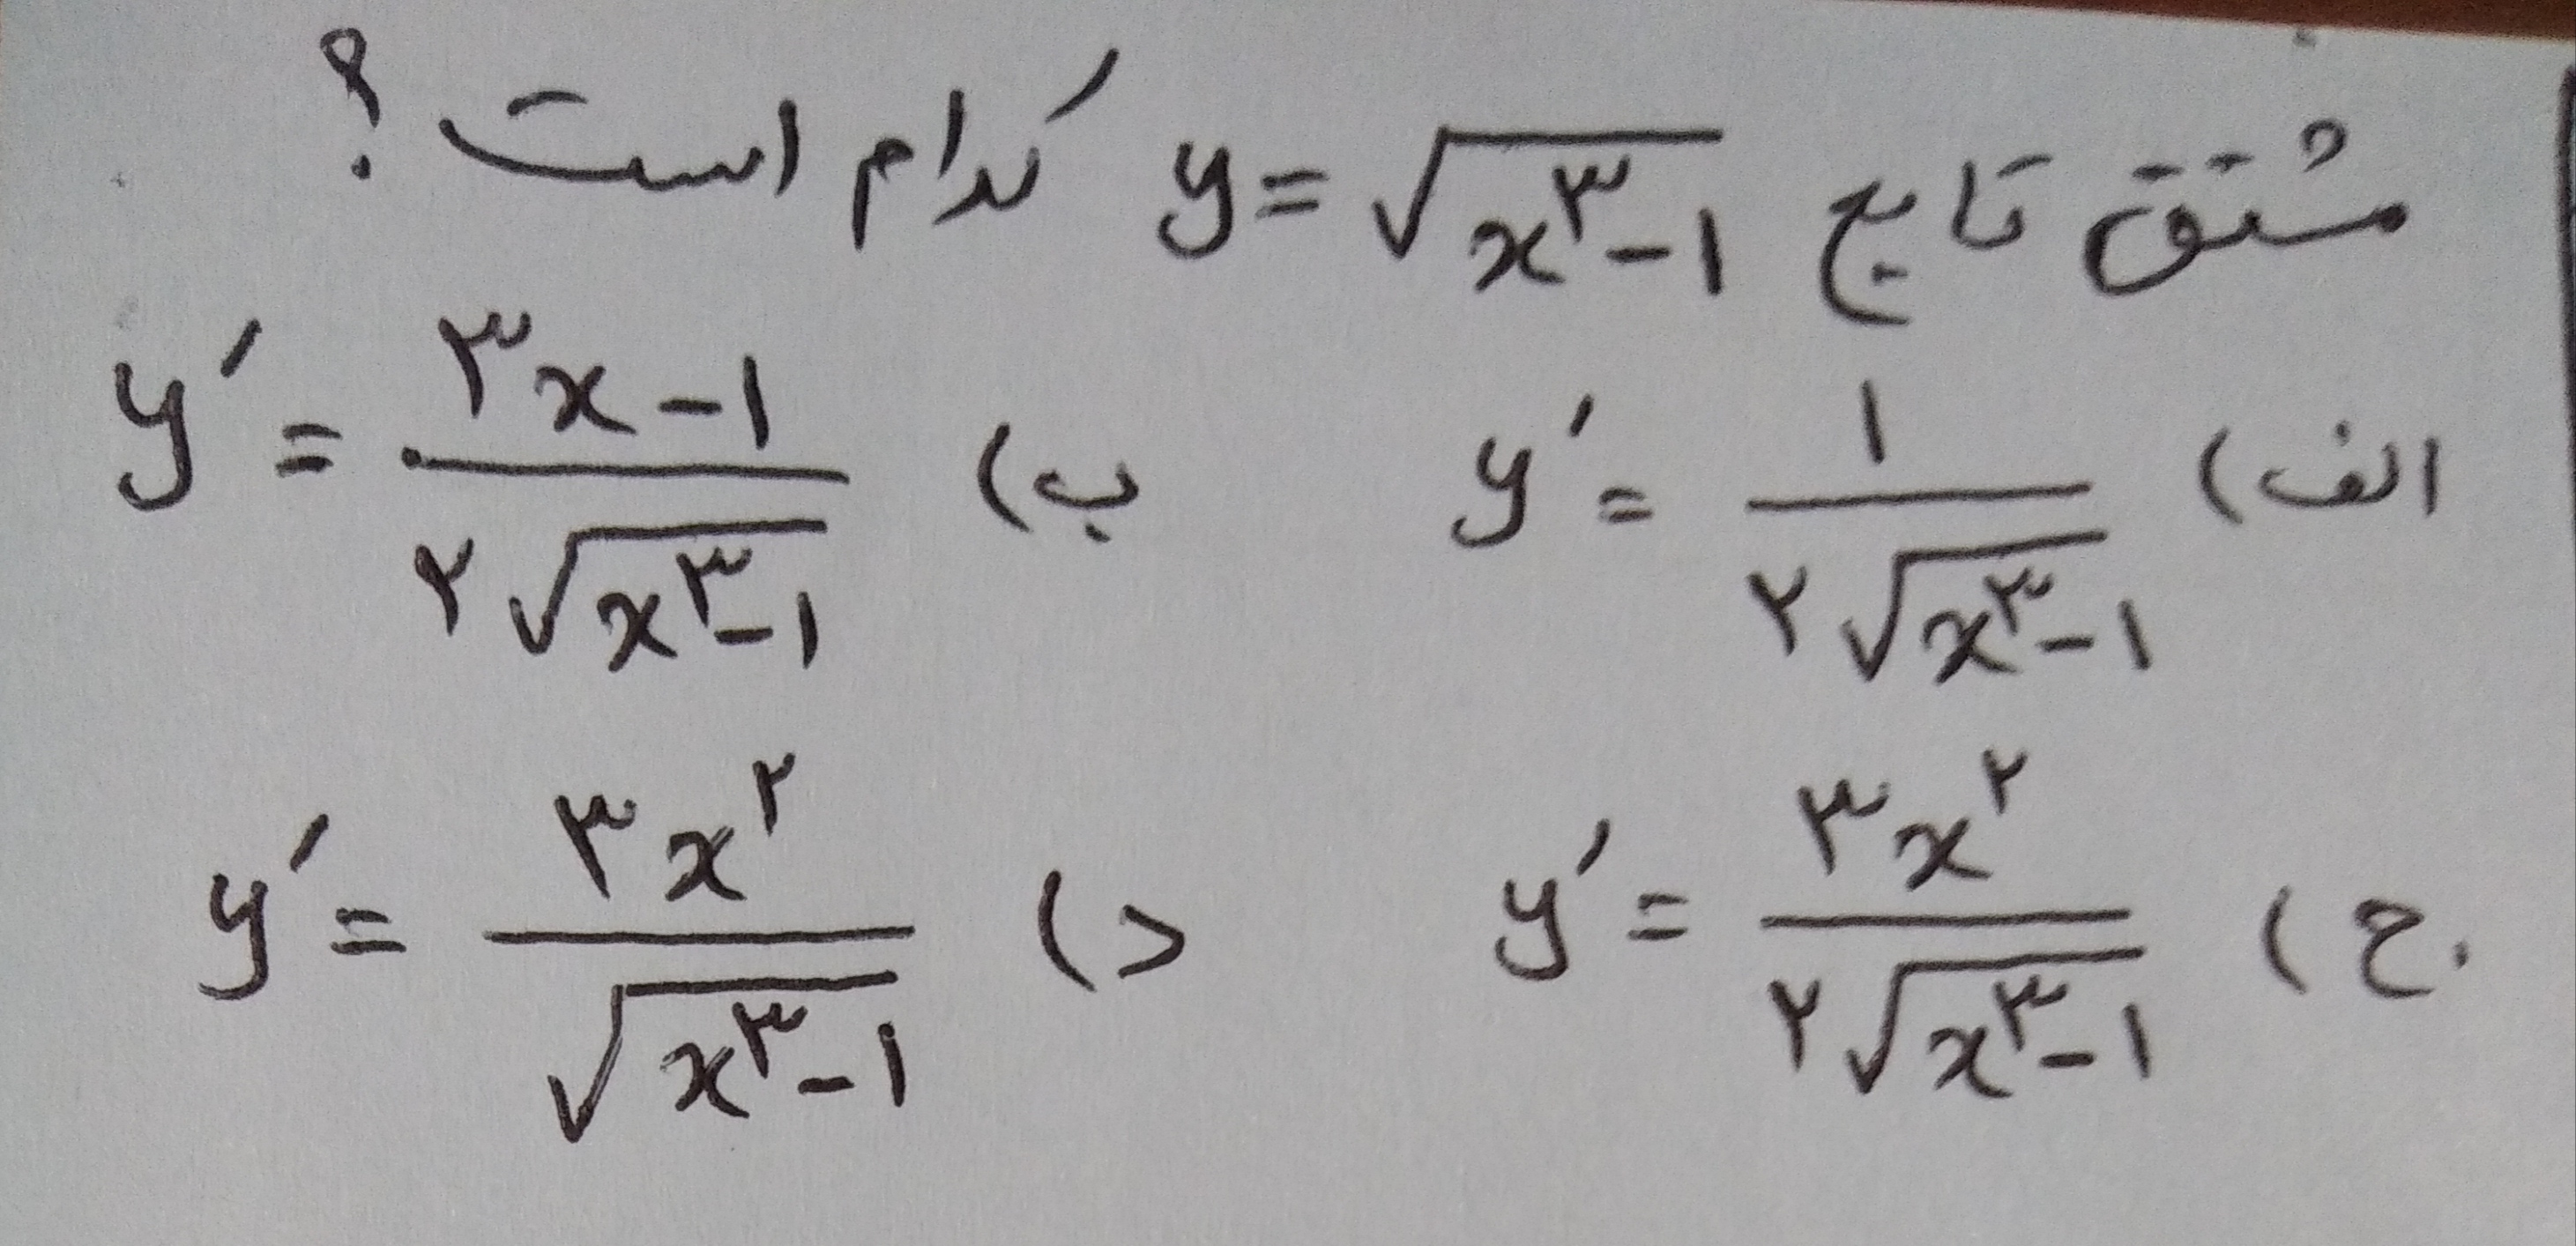 مشتق تابع y = √(x^۳ - ۱) کدام است ؟
الف) y′ = ۱ / (۲√(x^۳ - ۱)) ب) y′ = (۳x - ۱) / (۲√(x^۳ - ۱))
ج) y′ = ۳x^۲ / (۲√(x^۳ - ۱)) د) y′ = ۳x^۲ / √(x^۳ - ۱)